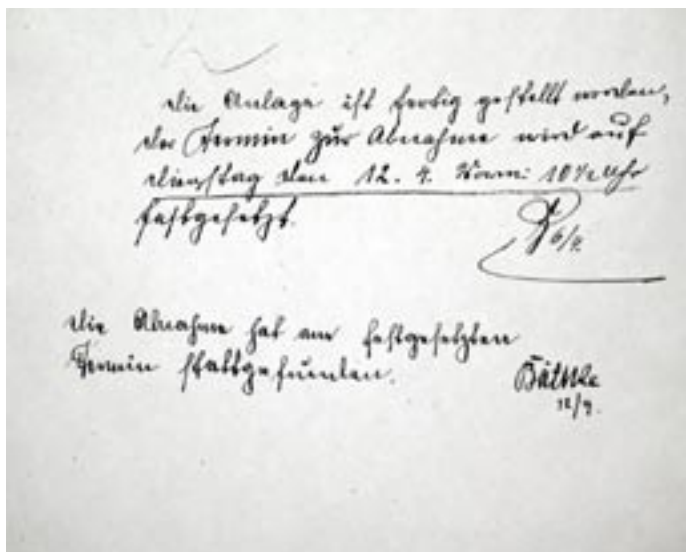 Die Anlage ist fertig gestellt worden,
der Termin zur Abnahme wird auf
Dienstag den 12. 9. Vorm: 10½ Uhr
festgesetzt.
Die Abnahme hat am festgesetzten
Termin stattgefunden.
12/9.